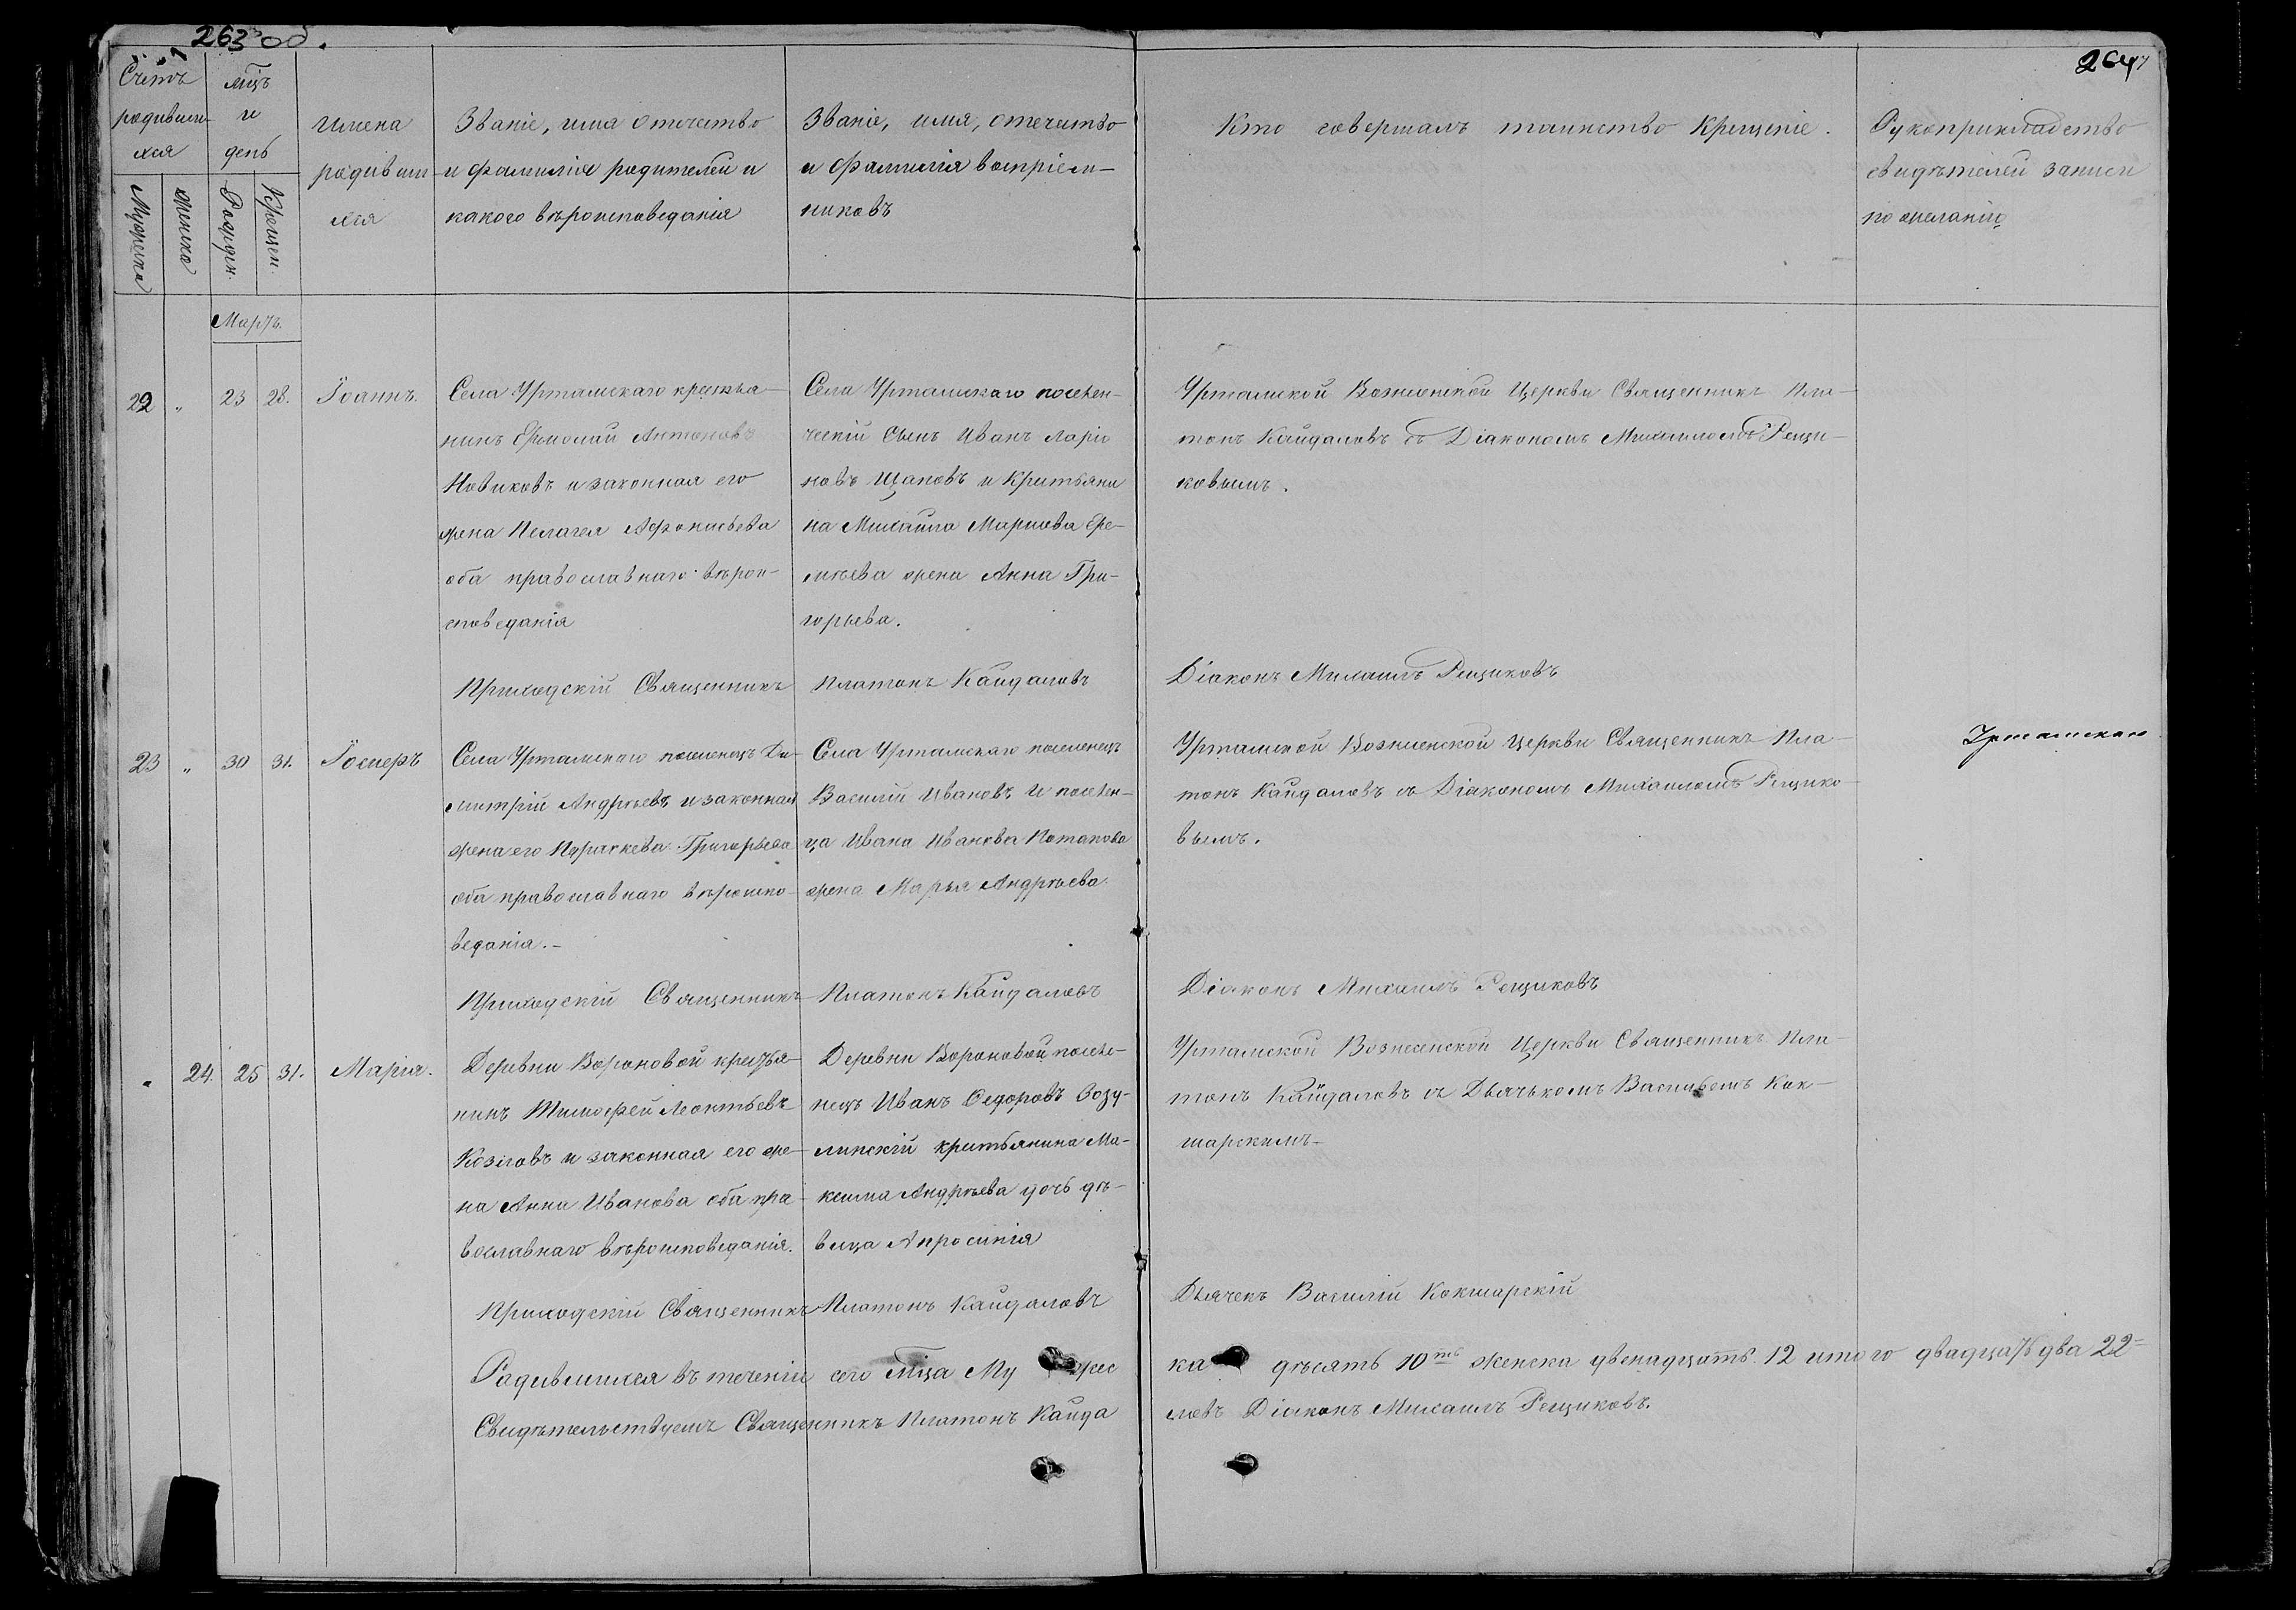 263 об.
264
Счетъ
родивши-
хся
Мужеска
женска
мѣцъ
и
день
Рожден.
Крещен.
имена
родивши-
хся
Званіе, имя отечество
и фамилія родителей и
какого вѣроисповеданія
Званіе, имя, отечество
и фамилія воспріем-
никовъ
Кто совершалъ таинство Крещеніе.
Рукоприкладство
свидѣтелей записи
по желанію
Мартъ.
22 „ 23 28. Іоаннъ.
Села Уртамскаго крестья-
нинъ Ермолай Антоновъ
Новиковъ и законная его
жена Пелагея Афонасьева
оба православнаго вѣрои-
споведанія
Села Уртамскаго поселен-
ческій сынъ Иванъ Ларіо
новъ Щаповъ и Крестьяни
на Михаила Маркова Ере-
мѣева жена Анна Гри-
горьева.
Уртамской Вознесенской Церкви Священникъ Пла-
тонъ Кайдаловъ съ Діакономъ Михаиломъ Рещи-
ковымъ.
Приходскій Священникъ Платонъ Кайдаловъ
Діаконъ Михаилъ Рещиковъ
23 „ 30 31. Іосиеръ
Села Уртамскаго поселенецъ Ди-
митрій Андрѣевъ и законная
жена его Параскева Григорьева
оба православнаго вѣроиспо-
веданія.-
Села Уртамскаго поселенецъ
Василій Ивановъ и поселен-
ца Ивана Иванова Потапова
жена Марья Андрѣева
Уртамской Вознесенской Церкви Священникъ Пла-
тонъ Кайдаловъ съ Діакономъ Михаиломъ Рещико-
вымъ.
Уртамскаго
Приходскій Священникъ Платонъ Кайдаловъ
Діаконъ Михаилъ Рещиковъ
„ 24. 25 31. Марія.
Деревни Вороновой крестья-
нинъ Тимофей Леонтьевъ
Козловъ и законная его же-
на Анна Иванова оба пра-
вославнаго вѣроисповеданія.
Деревни Вороновой поселе-
нецъ Иванъ Федоровъ Зозу-
линскій крестьянина Ма-
ксима Андрѣева дочь дѣ-
вица Апросинія
Уртамской Вознесенской Церкви Священникъ Пла-
тонъ Кайдаловъ съ Дьячькомъ Васильемъ Кок-
шарскимъ-
Приходскій Священникъ Платонъ Кайдаловъ
Дьячекъ Василій Кокшарскій
Родившихся въ теченіи сего мѣца Му жес
ка дѣсять 10ть женска двенадцать 12 итого двадцать два 22=
Свидѣтельствуемъ Священникъ Платонъ Кайда
ловъ Діаконъ Михаилъ Рещиковъ.